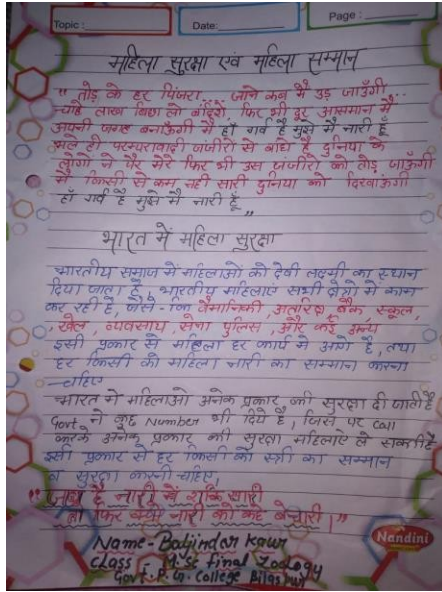 Topic :
Date:
Page :
महिला सुरक्षा एवं महिला सम्मान
" तोड़ के हर पिंजरा.... जाने कब मै उड़ जाउँगी
चाहे लाख बिछा लो बंदिशे फिर भी दूर आसमान मैं
अपनी जगह बनाऊंगी मैं हाँ गर्व है मुझे मै नारी हूँ
भले ही परम्परावादी जंजीरो से बांधे है दुनिया के
लोगो ने पैर मेरे फिर भी उस जंजीरो को तोड़ जाऊँगी
मै किसी से कम नही सारी दुनिया को दिखाऊंगी
हाँ गर्व है मुझे मै नारी हूँ "
भारत में महिला सुरक्षा
भारतीय समाज में महिलाओं को देवी लक्ष्मी का स्थान
दिया जाता है, भारतीय महिलाएं सभी क्षेत्रो मे काम
कर रही है, जैसे - कि वैमानिकी, अंतरिक्ष, बैंक, स्कूल,
, खेल, व्यवसाय, सेना पुलिस, और कई अन्य
इसी प्रकार से महिला हर कार्य मे आगे है, तथा
हर किसी को महिला नारी का सम्मान करना
चाहिए
भारत मे महिलाओ अनेक प्रकार की सुरक्षा दी जाती है
Govt ने कुछ Number भी दिये है, जिस पर call
करके अनेक प्रकार की सुरक्षा महिलाएं ले सकती है
इसी प्रकार से हर किसी को स्त्री का सम्मान
व सुरक्षा करनी चहिए,
" है नारी में शक्ति सारी
फिर क्यों नारी को कहे बेचारी। "
Name - Baljindar Kaur
Class - M.Sc final Zoology
Govt. P. G. College Bilaspur
Nandini